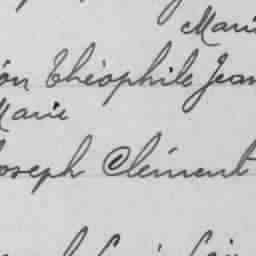 Marie
on Théophile Jean
Marie
Joseph Clément